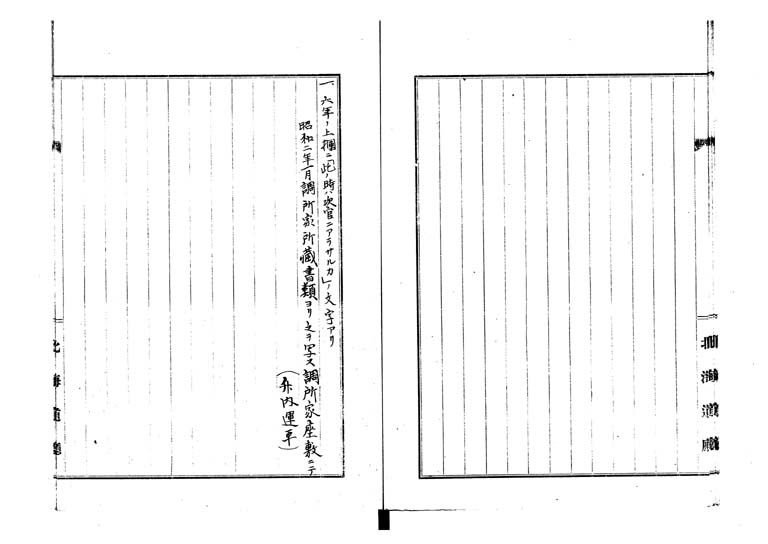 一、六年ノ上欄ニ「此ノ時ハ次官ニアラサルカ」ノ文字アリ
昭和二年一月調所家所蔵書類ヨリ之ヲ写ス調所家座敷ニテ
北海道廳